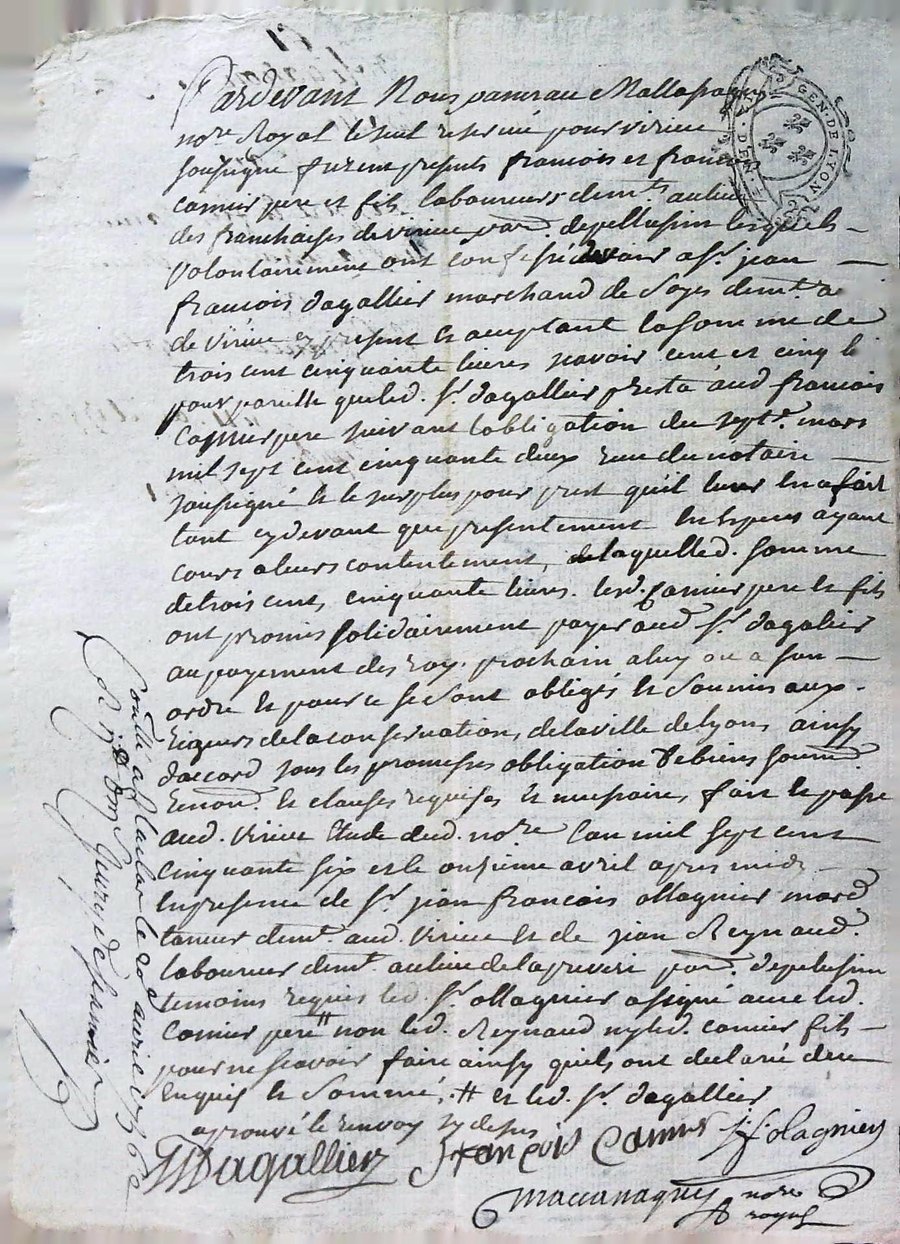 GEN. DE LYON
Pardevant Nous
no.re Royal le seul reservé pour virieu
soussigné furent presents francois et francois
camier pere et fils laboureurs dem.ts au lieu
des franchises de virieu par.e de pellussin lesquels
volontairement ont confessé devoir a s.r jean
francois dagallier marchand de soyes dem.t a
de virieu cy present et acceptant la somme de
trois cent cinquante livres scavoir cent et cinq li
pour pareille que led. s.r dagallier presta aud francois
camier pere suivant lobligation du sept.e mars
mil sept cent cinquante deux recue du notaire
soussigné et le surplus pour prest quil leur en a fait
tant cydevant que presentement en especes ayant
cours a leurs contentement, de laquelle d. somme
de trois cent, cinquante livres. lesd. camier pere et fils
ont promis solidairement payer aud s.r dagalier
au payement des roys prochain a luy ou a son
ordre et pour ce se sont obligés et soumis aux
rigueurs de la conservation, de la ville de lyon, ainsy
daccord sous les promesses obligation de biens soumi.
renon. et clauses requises et necessaires, fait et passé
aud. virieu Etude dud. no.re l'an mil sept cent
cinquante six et le onzieme avril apres midy
en presence de s.r jean francois ollagnier march
taneur dem.t aud. virieu et de jean Reynaud
laboureur dem.t au lieu de par.e de pelussin
temoins requis led. s.r ollagnier a signé avec led.
camier pere # non led. Reynaud ny led. camier fils
pour ne scavoir faire ainsy quils ont declaré de ce
enquis et sommé, # et led. s.r dagallier
aprouvé le renvoy cy dessus
Dagallier francois Camier j f olagnier
no.re
royal